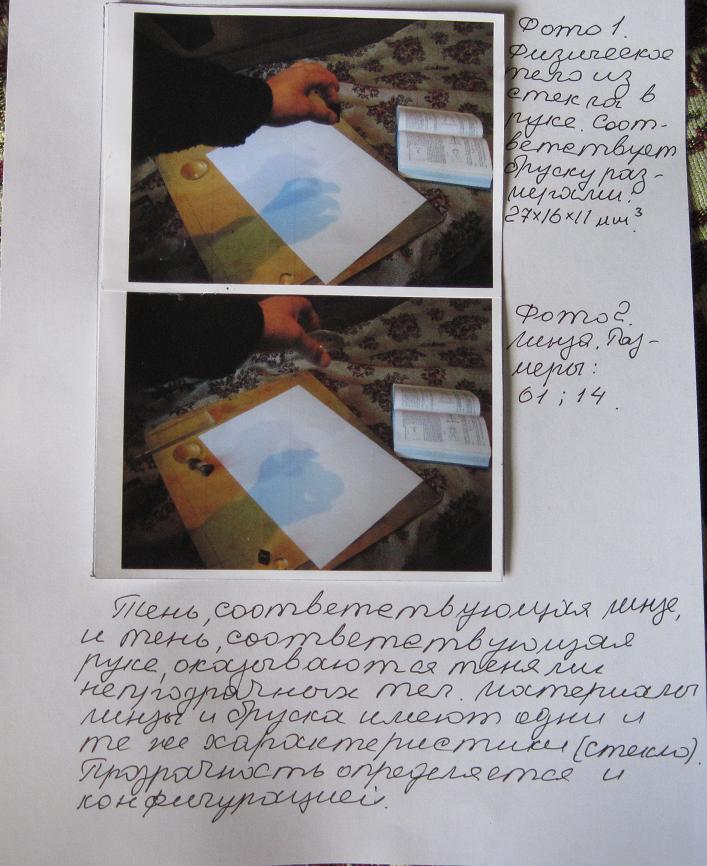 Фото 1.
Физическое
тело из
стекла в
руке. Соот-
ветствует
бруску раз-
мерами:
27×16×11 мм³.
Фото 2.
Линза. Раз-
меры:
61; 14.
Тень, соответствующая линзе,
и тень, соответствующая
руке, оказываются тенями
непрозрачных тел. Материалы
линзы и бруска имеют одни и
те же характеристики (стекло).
Прозрачность определяется и
конфигурацией.